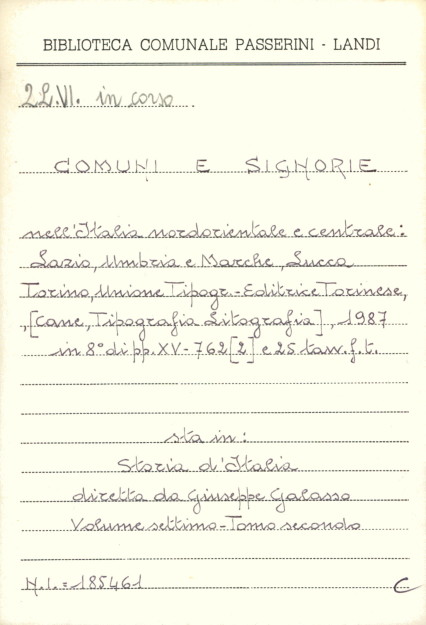 BIBLIOTECA COMUNALE PASSERINI - LANDI
2L.VI. in corso
COMUNI E SIGNORIE
nell'Italia nordorientale e centrale:
Lazio, Umbria e Marche, Lucca
Torino, Unione Tipogr.-Editrice Torinese,
, [Cane, Tipografia Litografia], 1987
in 8° di pp. XV-762 [2] e 25 tavv. f.t.
sta in:
Storia d'Italia
diretta da Giuseppe Galasso
Volume settimo - Tomo secondo
N.I. = 185461
C